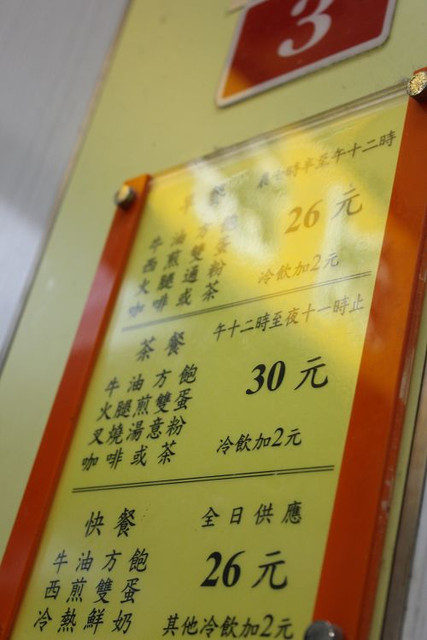 3
早餐
晨七時半至午十二時
牛油方飽
西煎雙蛋
火腿通粉
咖啡或茶
26元
冷飲加2元
茶餐
午十二時至夜十一時止
牛油方飽
火腿煎雙蛋
叉燒湯意粉
咖啡或茶
30元
冷飲加2元
快餐
全日供應
牛油方飽
西煎雙蛋
冷熱鮮奶
26元
其他冷飲加2元